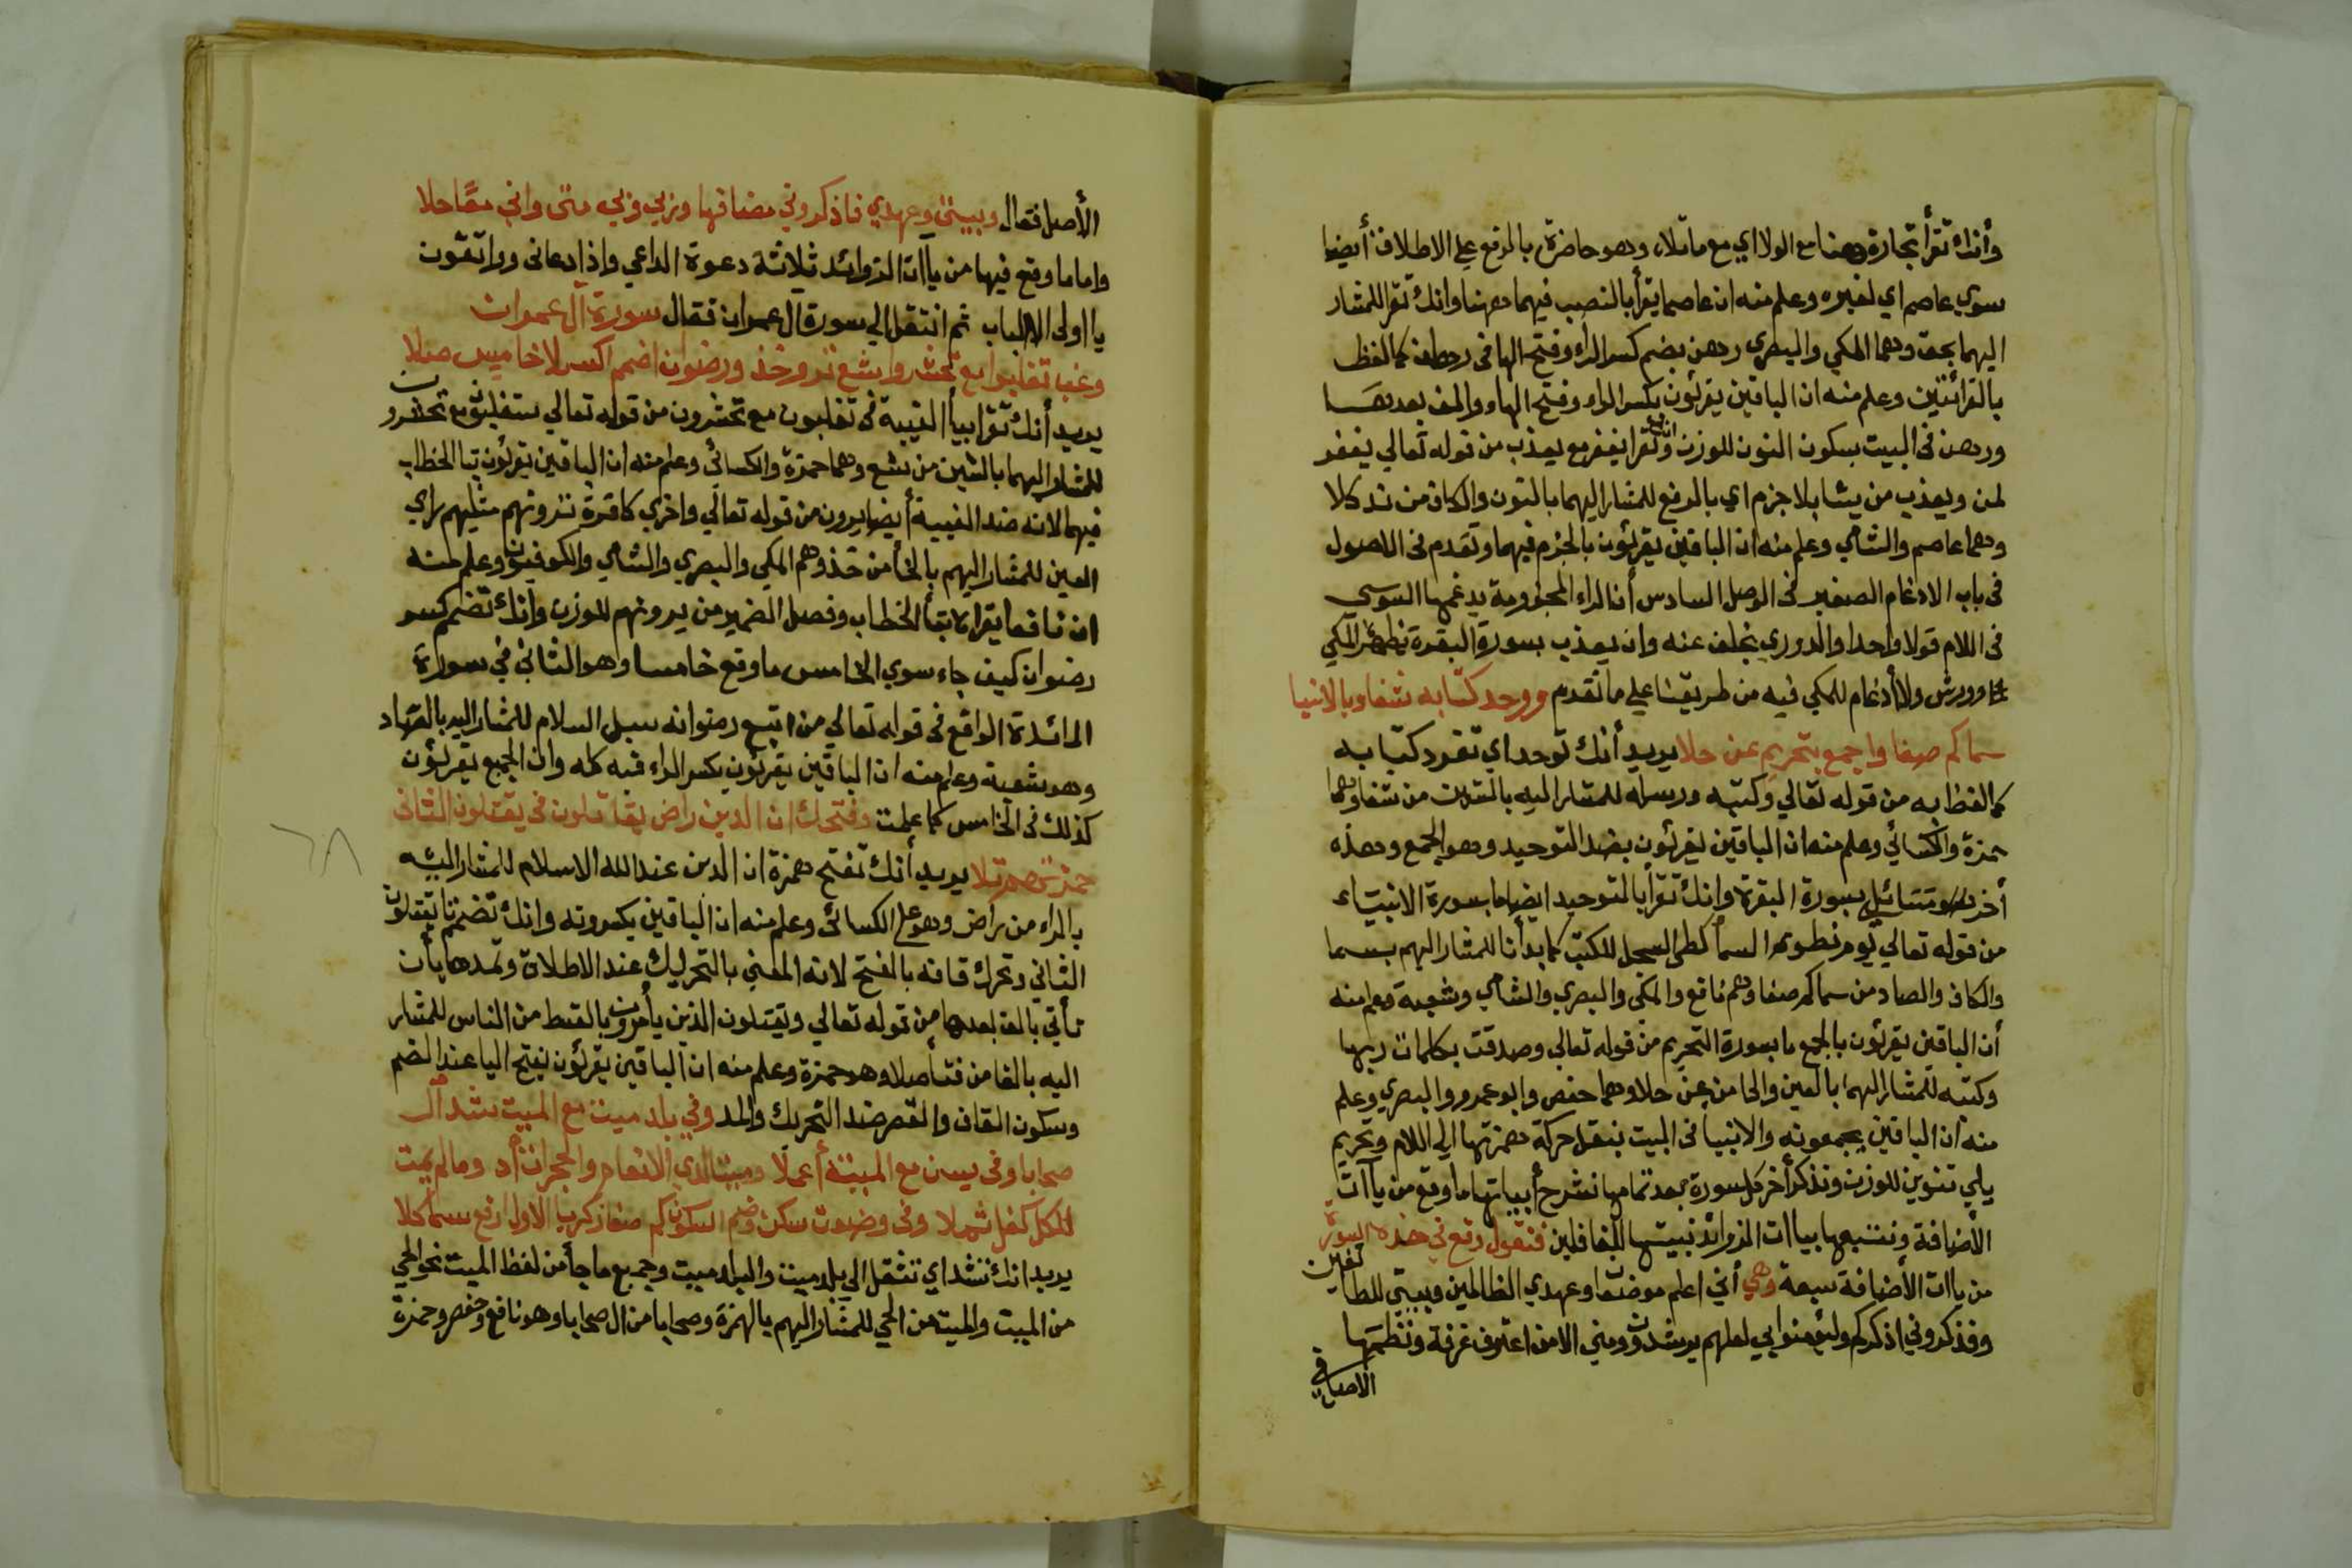 وأنك تقرأ تجارة هنا مع الولا اي مع ما تلاه وهو حاضرة بالرفع علي الاطلاق أيضا
سوي عاصم اي لغيره وعلم منه ان عاصما يقرأ بالنصب فيهما هنا وانك تقرا للمشار
اليهما بحق وهما المكي والبصري رهن بضم كسر الراء وفتح الها في رهان كما لفظ
بالقرائتين وعلم منه ان الباقين يقرئون بكسر الراء وفتح الهاء والف بعدهـا
ورهن في البيت بسكون النون للوزن وانك تقرا يغفر مع يعذب من قوله تعالي يغفر
لمن ويعذب من يشا بلا جزم اي بالرفع للمشار اليهما بالنون والكاف من ند كلا
وهما عاصم والشامي وعلم منه ان الباقين يقرئون بالجزم فيهما وتقدم في الاصول
في باب الادغام الصغير في الوصل السادس أن الراء المجزومة يدغمها السوسي
في اللام قولا واحدا والدوري بخلف عنه وان يعذب بسورة البقرة يظهره المكي
وورش ولا أدغام للمكي فيه من طريقنا علي ما تقدم ووحد كتابه شفا وبالانبيا
سما كم صفا واجمع بتحريم عن حلا يريد أنك توحد اي تفرد كتابه
كما لفظ به من قوله تعالي وكتبه ورسله للمشار اليه بالشين من شفا وهما
حمزة والكسائي وعلم منه ان الباقين يقرئون بضد التوحيد وهو الجمع وهذه
أخر مسائل بسورة البقرة وانك تقرأ بالتوحيد ايضا ما بسورة الانبيـاء
من قوله تعالي يوم نطوي السما كطي السجل للكتب كما بدأنا للمشار اليهم بسما
والكاف والصاد من سما كم صفا وهم نافع والمكي والبصري والشامي وشعبة وعلم منه
أن الباقين يقرئون بالجمع ما بسورة التحريم من قوله تعالي وصدقت بكلمات ربها
وكتبه للمشار اليهما بالعين والحا من عن حلا وهما حفص وابو عمرو والبصري وعلم
منه ان الباقين يجمعونه والانبيا في البيت بنقل حركة همزتها الي اللام وتحريم
يلي تنوين للوزن ونذكر أخر كل سورة بعد تمامها نشرح أبياتها ما وقع من يآآت
الأضافة ونتبعها بياات الزوائد نبيتها للغافلين فنقول وقع في هذه السورة
من ياات الأضافة سبعة وهي أني اعلم موضعا وعهدي الظالمين وبيتي للطائفين
وفذكروني اذكركم وليؤمنوا بي لعلهم يرشدون ومني الا من اغترف غرفة ونظمها
الاصل في
الأصل فقال وبيتي وعهدي فاذكروني مضافها وربي وبي مني واني معا حلا
واما ما وقع فيها من ياآت الزوائد ثلاثة دعوة الداعي واذا دعاني وواتقون
يا اولي الالباب ثم انتقل الي سورة ال عمران فقال سورة آل عمران
وغب تغلبوا مع تحشروا شع ترو خذ ورضوان اضمم اكسر لا خاميس صلا
يريد أنك تقرا بيأ الغيبة في تغلبون مع تحشرون من قوله تعالي ستغلبون وتحشرون
للمشار اليهما بالشين من شع وهما حمزة والكسائي وعلم منه ان الباقين يقرئون بتا الخطاب
فيهما لانه ضد الغيبة أيضا يرون من قوله تعالي واخري كافرة ترونهم مثليهم راي
العين للمشار اليهم بالخأ من خذ وهم المكي والبصري والشامي والكوفيون وعلم منه
ان نافعا يقراه بتأ الخطاب وفصل الضمير من يرونهم للوزن وانك تضم كسر
رضوان كيف جاء سوي الخامس ما وقع خامسا وهو الثاني في سورة
المائدة الواقع في قوله تعالي من اتبع رضوانه سبل السلام للمشار اليه بالصاد
وهو شعبة وعلم منه ان الباقين يقرئون بكسر الراء فيه كله وان الجميع يقرئون
كذلك في الخامس كما علمت وفتحك ان الدين راض يقاتلون في يقتلون الثاني
يريد أنك تفتح همزة ان الدين عند الله الاسلام للمشار اليه
بالراء من راض وهو علي الكسائي وعلم منه ان الباقين يكسرونه وانك تضم تا يقتلون
الثاني وتحرك قافه بالفتح لانه المعني بالتحريك عند الاطلاق وتمدها بأن
تأتي بالف بعدها من قوله تعالي ويقتلون الذين يأمرون بالقسط من الناس للمشار
اليه بالفا من فتأصلا وهو حمزة وعلم منه ان الباقين يقرئون بفتح اليا عند الضم
وسكون القاف والقصر ضد التحريك والمد وفي بلد ميت مع الميت شد آل
صحابا وفي يسن مع الميتة أعملا وميتا لدي الانعام والحجرات أد وما لم يمت
للكل كفل ثملا وفي وضعت سكن وضم السكون كم صفا زكريا الاول ارفع سما كلا
يريد انك تشد اي تثقل الي بلد ميت والبلد ميت وجميع ما جأ من لفظ الميت نحو الحي
من الميت والميت من الحي للمشار اليهم بالهمزة وصحابا من ال صحابا وهو نافع وحفص وحمزة